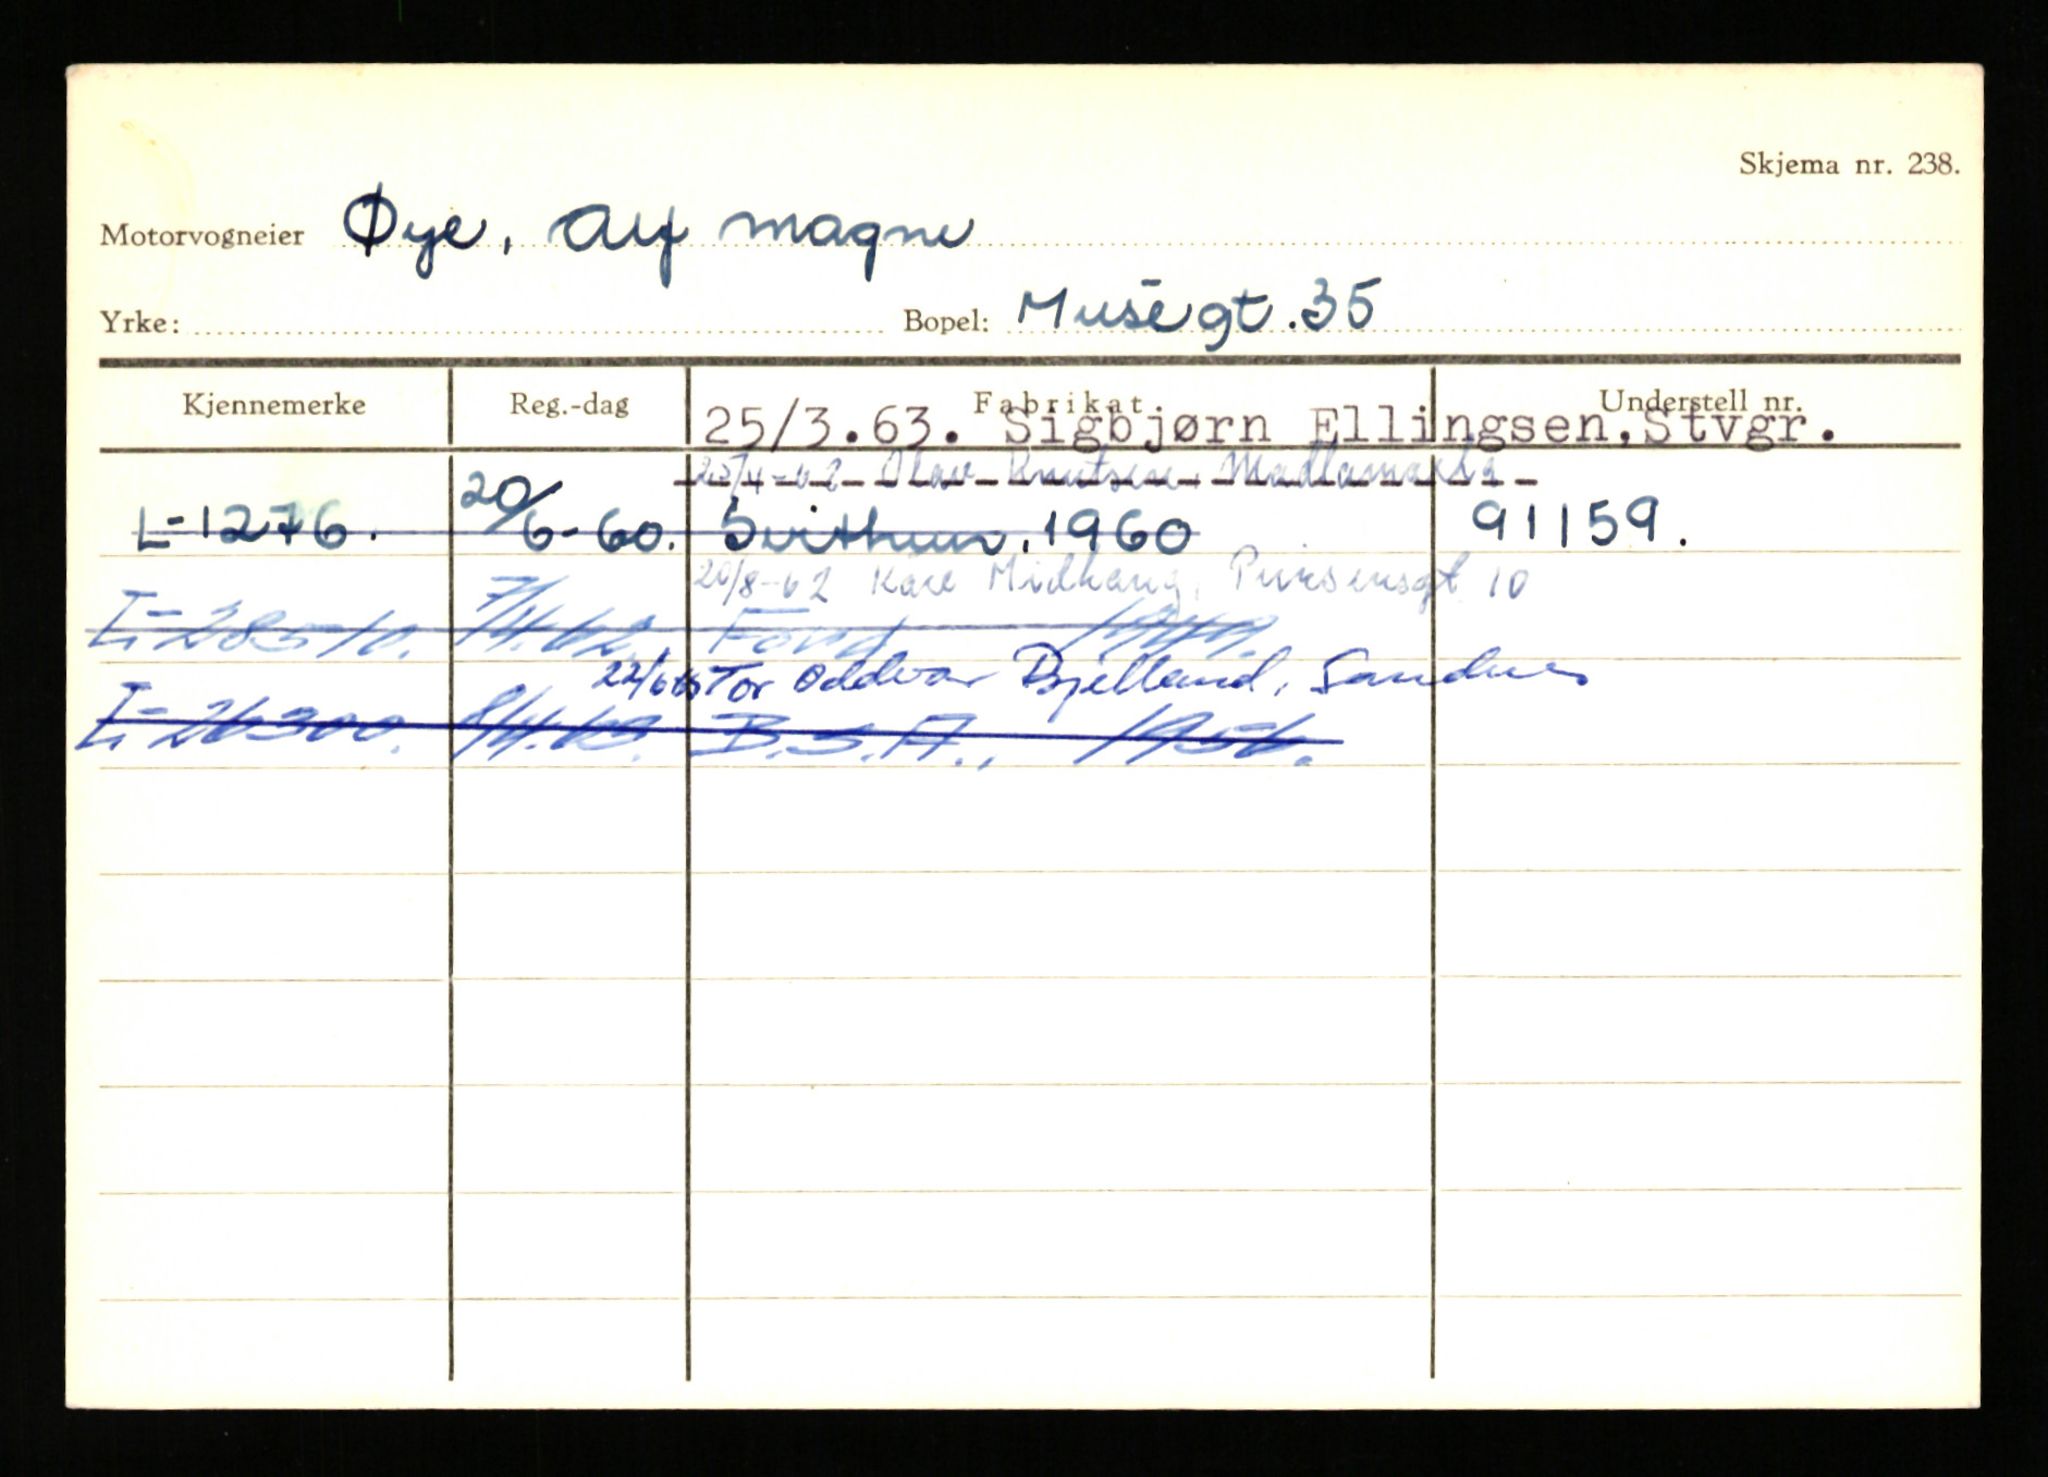 Skjema nr. 238.
Motorvogneier Øye, Alf Magne
Yrke: Bopel: Muségt. 35
Kjennemerke Reg.-dag Fabrikat. Understell nr.
25/3.63. Sigbjørn Ellingsen, Stvgr.
25/4-62 Olav Knutsen, Madlamarka
L-1276. 20/6-60. Svithun, 1960 91159.
20/8-62 Kåre Midhaug, 10
L-28510. 7/4.62. Ford
22/6 Tor Oddvar Bjelland, Sandnes
L-26300. B.S.A., 1956.